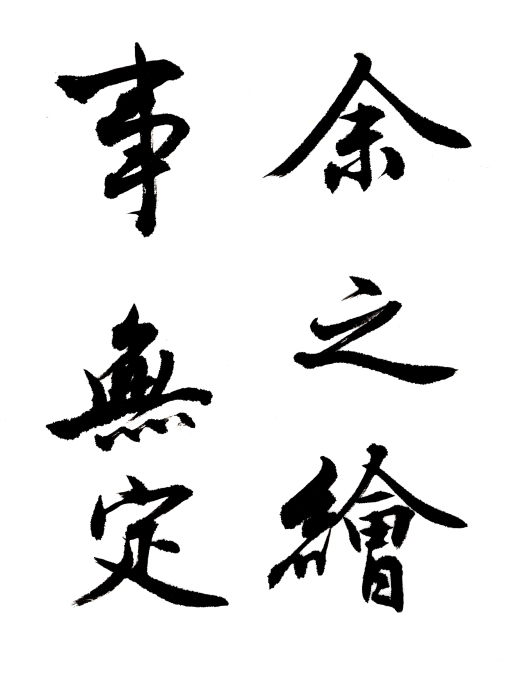 余之繪
事無定